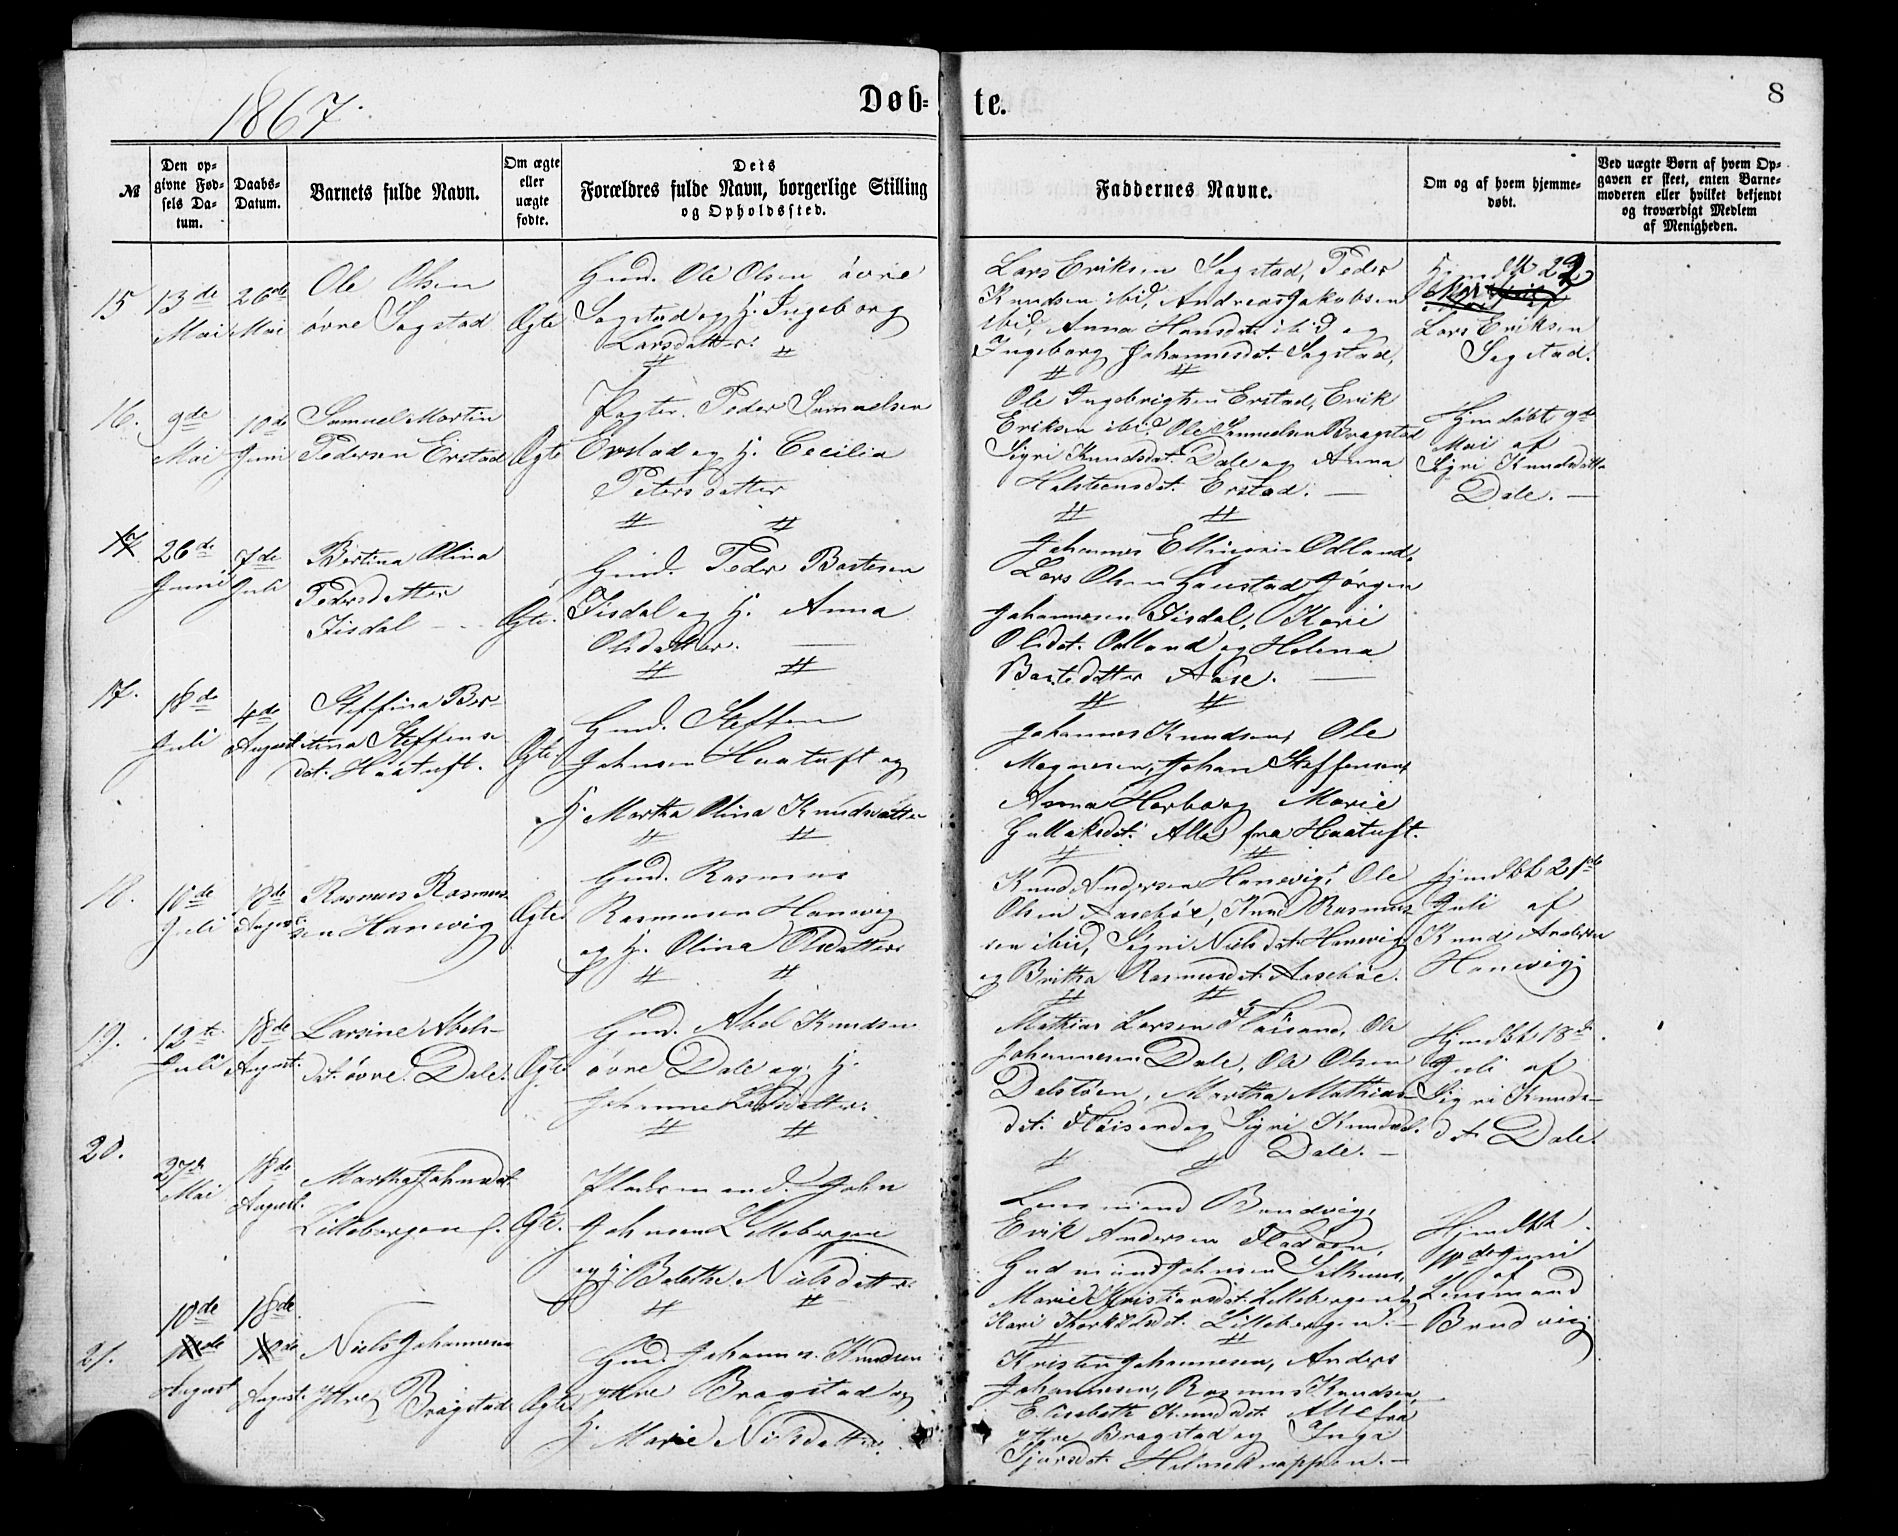 1867.
Døb-
te.
8
№
Den op-
givne Fød-
sels Da-
tum.
Daabs-
Datum.
Barnets fulde Navn.
Om ægte
eller
uægte
fødte.
Dets
Forældres fulde Navn, borgerlige Stilling
og Opholdssted.
Faddernes Navne.
Om og af hvem hjemme-
døbt.
Ved uægte Børn af hvem Op-
gaven er skeet, enten Barne-
moderen eller hvilket bekjendt
og troværdigt Medlem
af Menigheden.
15
13de
Mai
26de
Mai
Ole Olsen
øvre Sagstad
Ægte
Gmd. Ole Olsen øvre
Sagstad og H. Ingeborg
Larsdatter.
Lars Eriksen Sagstad, Peder
Knudsen ibid, Andreas Jakobsen
ibid, Anna Hansdt. ibid og
Ingeborg Johannesdt. Sagstad,
22
Lars Eriksen
Sagstad.
16.
9de
Mai
10de
Juni
Samuel Martin
Pedersen Erstad
Ægte
Peder Samuelsen
Erstad og H. Cecilia
Petersdatter
Ole Ingebrigtsen Erstad, Erik
Eriksen ibid. Ole Samuelsen Bragstad
Sigri Knudsdt. Dale og Anna
Halsteensdt. Erstad. —
Hjemdøbt 9de
Mai af
Sigri Knudsdatter
Dale. —
26de
Juni
7de
Juli
Bertina Olina
Pedersdatter
Tisdal — .
Ægte.
Gmd. Peder Bastesen
Tisdal og H. Anna
Olsdatter. —
Johannes Ellingsen Odland,
Lars Olsen Haustad Jørgen
Johannesen Tisdal, Kari
Olsdt. Odland og Helena
Bastesdatter Aase. —
17.
18de
Juli
4de
August
Steffina Ber-
tina Steffens
dt. Haatuft.
Ægte.
Gmd. Steffen
Johnsen Haatuft og
H. Martha Olina Knudsdatter
Johannes Knudsen, Ole
Magnesen, Johan Steffensen,
Anna og Marie
Gullaksdt. Alle fra Haatuft.
18.
10de
Juli
18de
August
Rasmus Rasmus-
sen Hanevig
Ægte
Gmd. Rasmus
Rasmusen Hanevig
og H. Olina Olsdatter.
Knud Andersen Hanevig, Ole
Olsen Aasebøe, Knud Rasmus-
sen ibid, Signi Nielsdt. Hanevig
og Britha Rasmusdt. Aasebøe.
Hjemdbt 21de
Juli af
Knud Andersen
Hanevig
19.
12te
Juli
18de
August.
Larsine Abels-
dt. øvre Dale.
Ægte
Gmd. Abel Knudsen
øvre Dale og H.
Johanne Larsdatter.
Mathias Larsen Fløisand, Ole
Johannesen Dale, Ole Olsen
Dalstøen, Martha Mathias-
dt. Fløisand og Sigri Knudsdt.
Dale. —
Hjemdbt 18de
Juli af
Sigri Knuds-
dt. Dale.
20.
27de
Mai
18de
August.
Martha Johnsdt.
Lillebergen
Ægte.
Pladsmand. John
Johnsen Lillebergen
og H. Bolethe Nielsdatter.
Lensmand Brudvig,
Erik Andersen Fladøen,
Gudmund Johnsen Salhuus,
Marie Kristiansdt. Lillebergen og
Kari Thorkildsdt. Lillebergen. —
Hjemdbt
10de Juni
af
Lensmand
Brudvig
21.
10de
August
18de
August.
Niels Johannesen
Ytre Bragstad
Ægte
Gmd. Johannes Knudsen
ytre Bragstad og
H. Marie Nilsdatter.
Kristen Johannesen, Anders
Johannesen, Rasmus Knudsen,
Elisabeth Knudsdt. Alle fra
ytre Bragstad og Inga